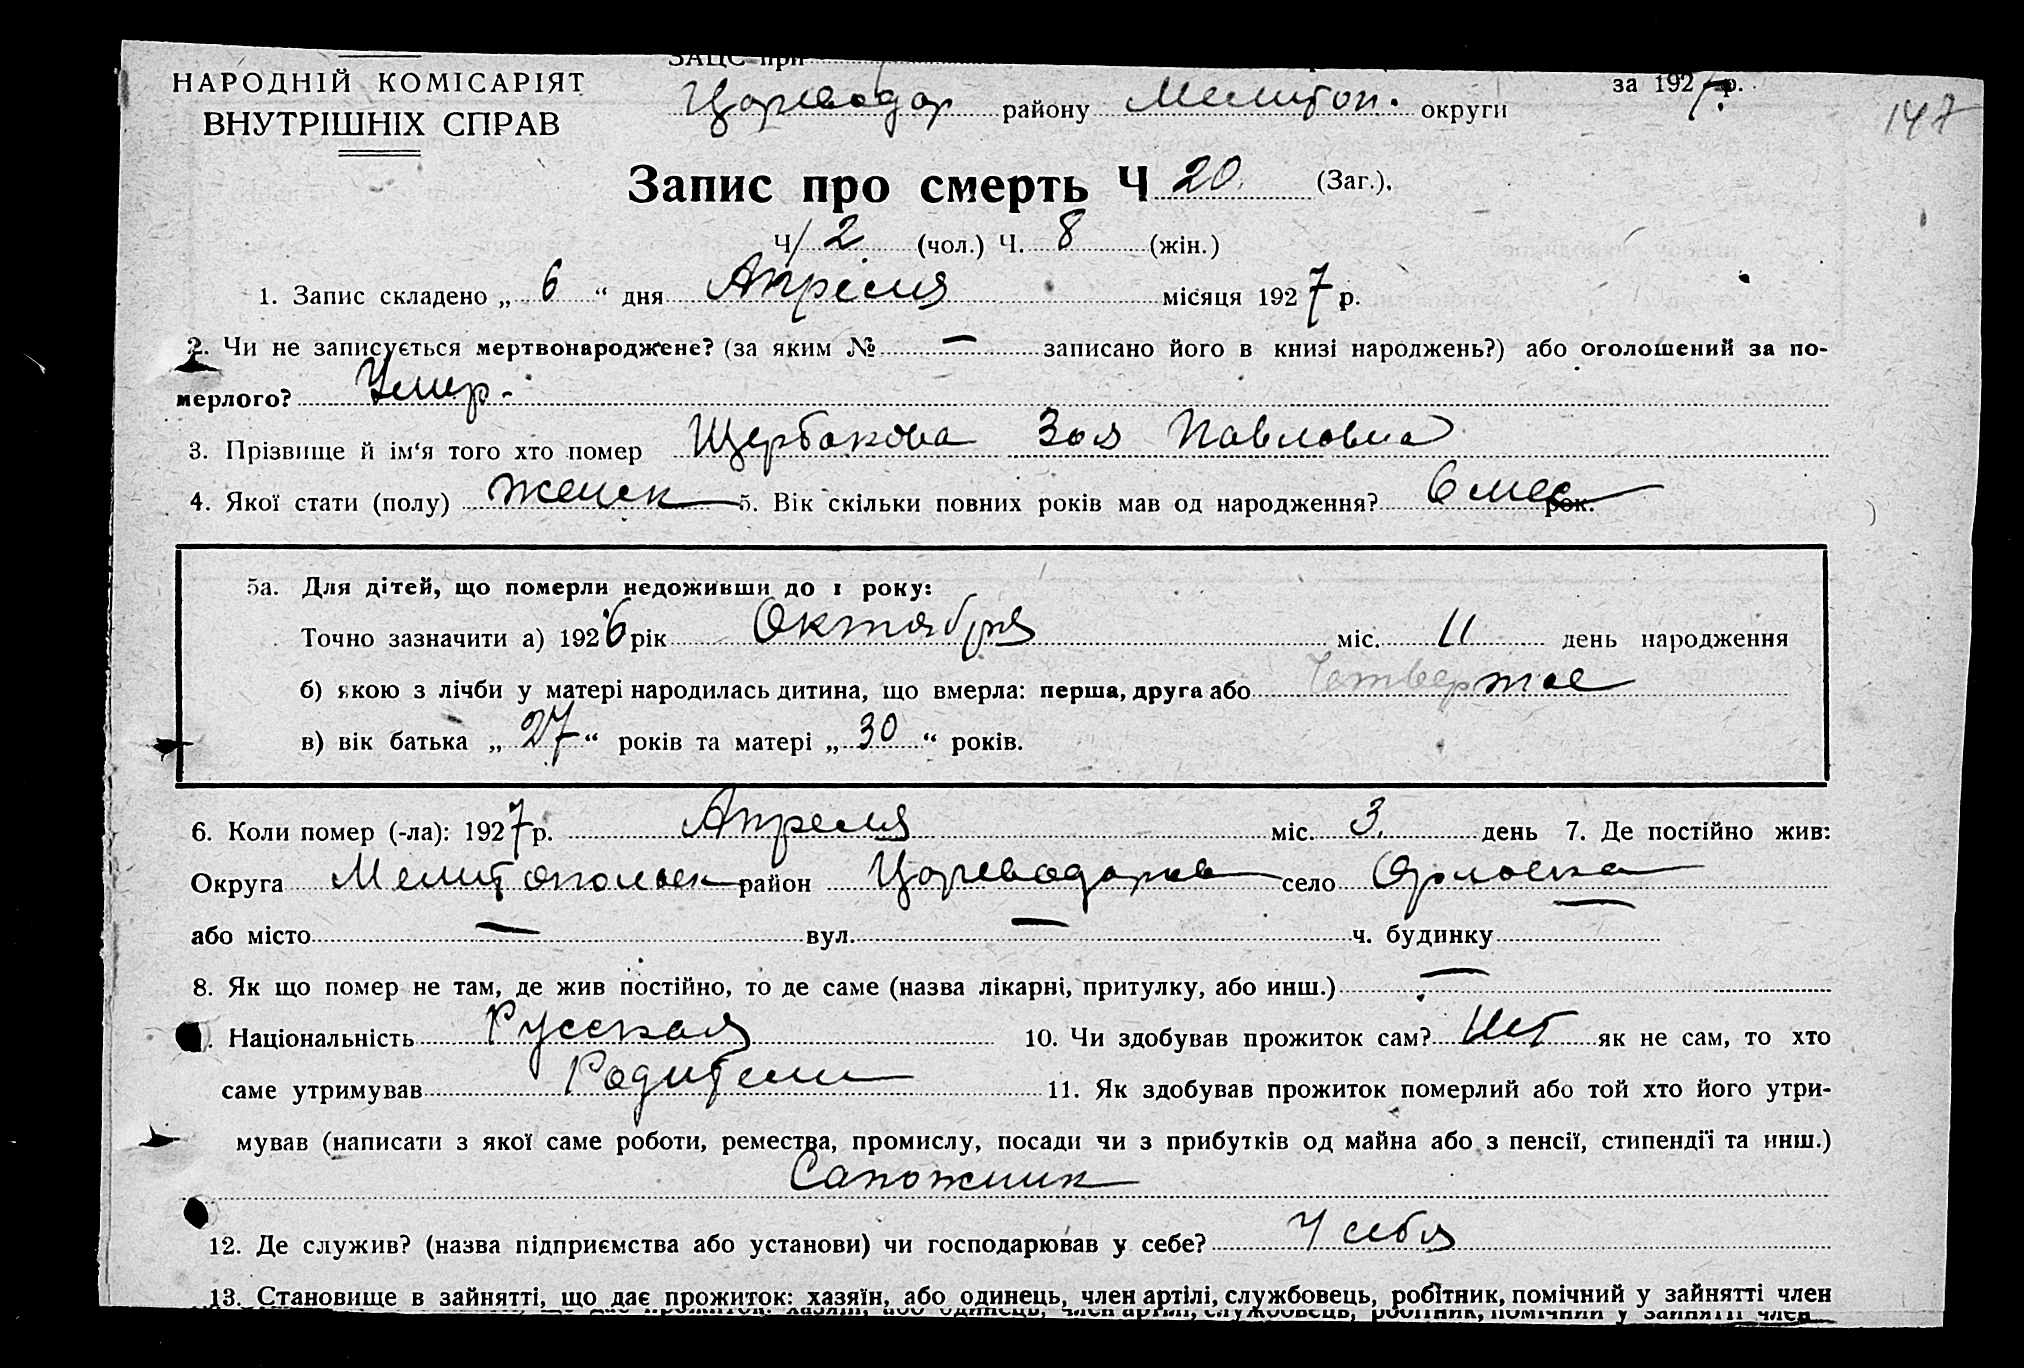 НАРОДНІЙ КОМІСАРІЯТ
ВНУТРІШНІХ СПРАВ
ЗАЦС при
Цареводар району Мелитоп. округи
за 1927 р.
147
Запис про смерть Ч 20. (Заг.),
Ч 12 (чол.) Ч. 8 (жін.)
1. Запис складено „ 6 “ дня Апреля місяця 1927 р.
2. Чи не записується мертвонароджене? (за яким № — записано його в книзі народжень?) або оголошений за по-
мерлого? Умер.
3. Прізвище й ім‘я того хто помер Щербакова Зоя Павловна
4. Якої стати (полу) женск 5. Вік скільки повних років мав од народження? 6 мес рок.
5а. Для дітей, що померли недоживши до 1 року:
Точно зазначити а) 1926 рік Октября міс. 11 день народження
б) якою з лічби у матері народилась дитина, що вмерла: перша, друга або Четвертое
в) вік батька „ 27 “ років та матері „ 30 “ років.
6. Коли помер (-ла): 1927 р. Апреля міс. 3. день 7. Де постійно жив:
Округа Мелитопольск район Цареводаров село Орловка
або місто — вул. — ч. будинку —
8. Як що помер не там, де жив постійно, то де саме (назва лікарні, притулку, або инш.) —
. Національність Русская 10. Чи здобував прожиток сам? Нет як не сам, то хто
саме утримував Родители 11. Як здобував прожиток померлий або той хто його утри-
мував (написати з якої саме роботи, ремества, промислу, посади чи з прибутків од майна або з пенсії, стипендії та инш.)
Сапожник
12. Де служив? (назва підприємства або установи) чи господарював у себе? У себя
13. Становище в зайнятті, що дає прожиток: хазяїн, або одинець, член артілі, службовець, робітник, помічний у зайнятті член